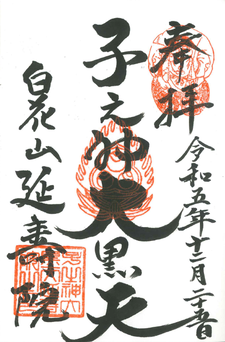 奉拝
令和五年十二月二十五日
子之神大黒天
白花山延寿院